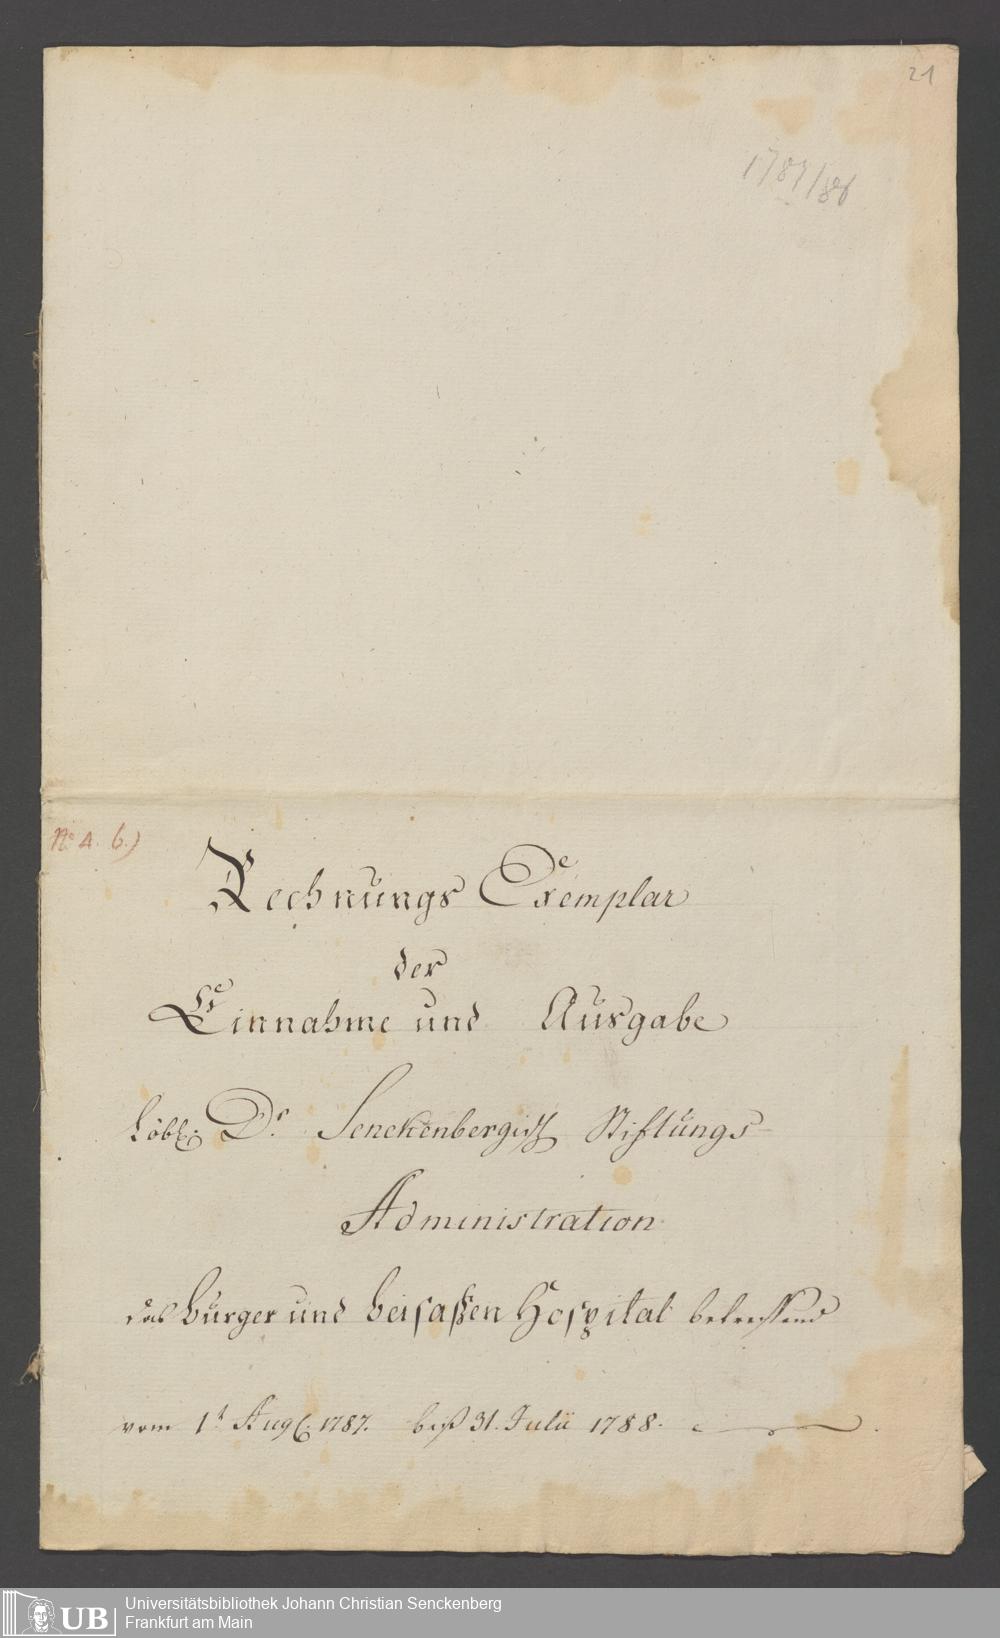 21
1787/88
No 4. b.)
Rechnungs Exemplar
der
Einnahme und Ausgabe
Löbl. Dr. Senckenbergisch Stiftungs-
Administration
das Burger und beisaßen Hospital betreffend
vom 1t Augt. 1787. biß 31. Julii 1788.
UB
Universitätsbibliothek Johann Christian Senckenberg
Frankfurt am Main